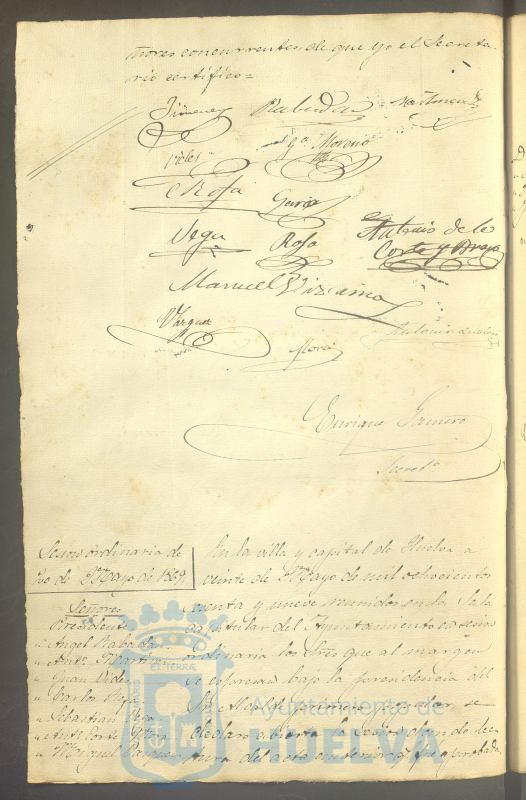 ñores concurrentes de que yo el Secreta-
rio certifico=
Jimenez Rabadan Martinez
Vides Ga Moreno
C Rosa Garcia
Vega Rosa Antonio de la
Corte y Bravo
Manuel Vizcaino
Vazquez Antonio
Mora
Enrique
Secreto
Sesion ordinaria de
20 de Mayo de 1869
Señores
Presidente
" Angel Rabadan
" Anto Martinez
" Juan Vides
" Carlos
" Sebastian
" Anto Corte
" Miguel Vazquez
En la villa y capital de Huelva a
veinte de Mayo de mil ochocientos
sesenta y nueve reunidos en la Sala
capitular del Ayuntamiento en sesion
ordinaria los Sres que al margen
se espresan bajo la presidencia del
Sr Alcalde primero por el se
declaro abierta la sesion dando lec-
tura del acta anterior y fue aprobada
Ayuntamiento de
HUELVA